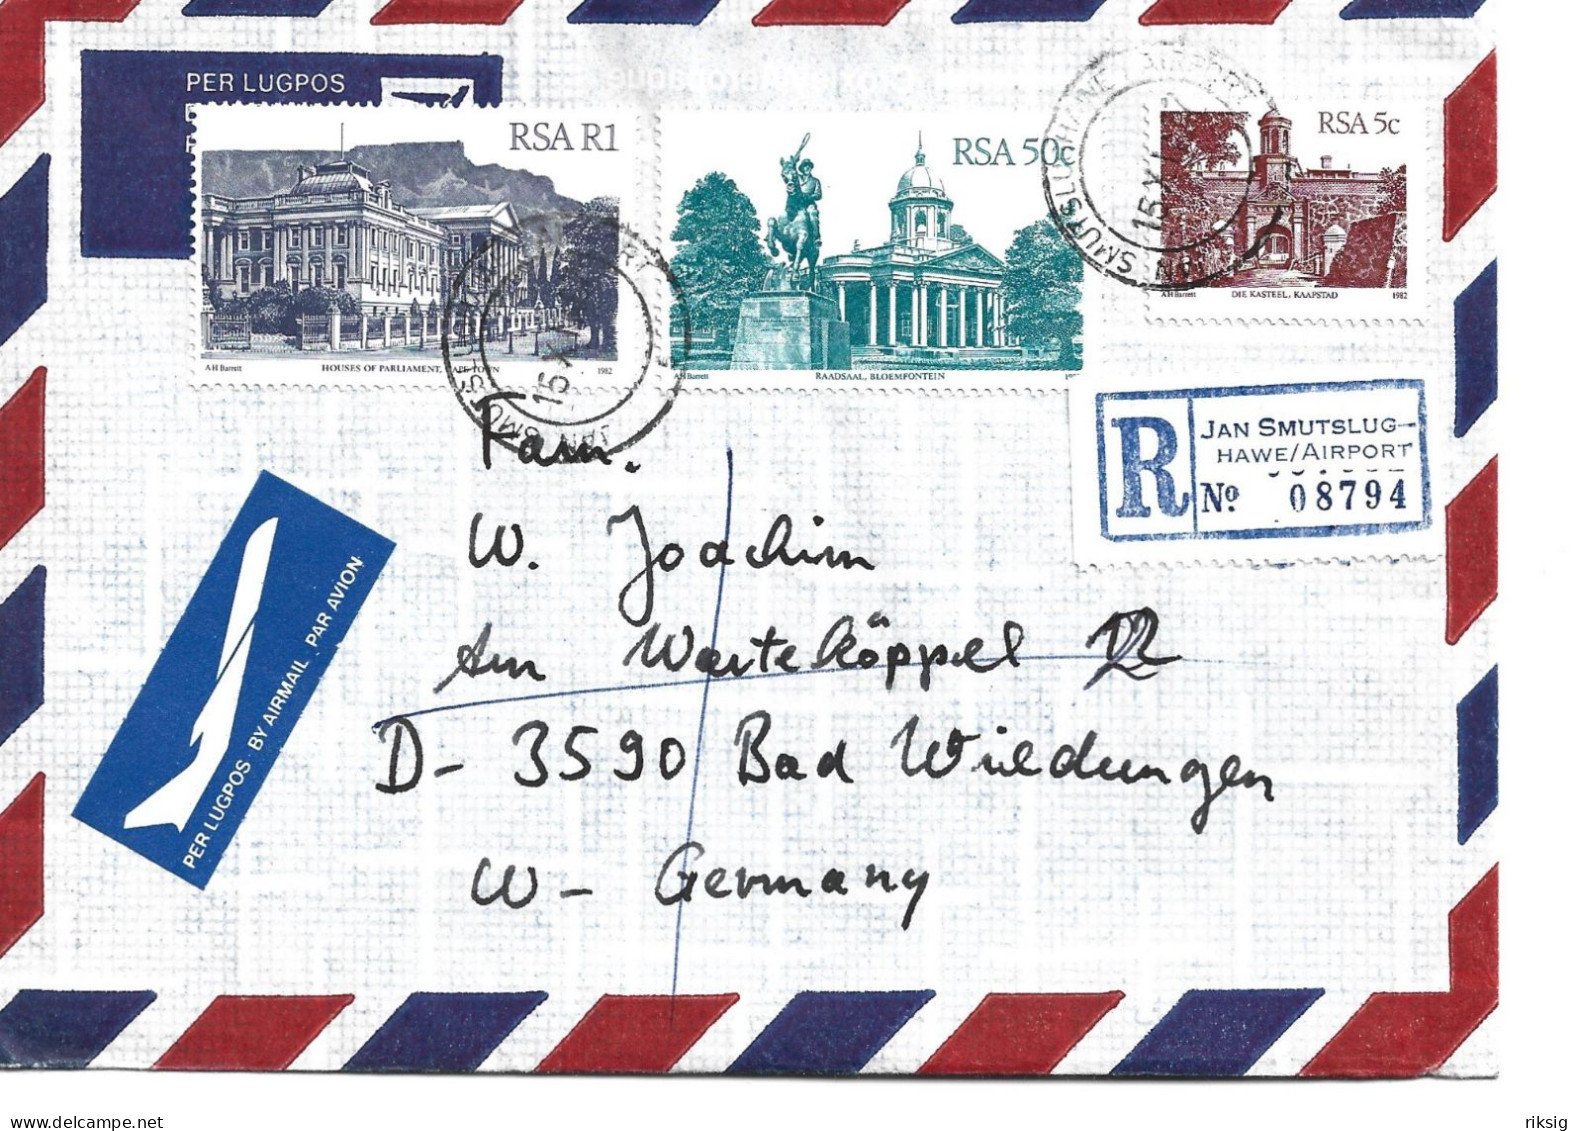 PER LUGPOS
RSA R1
AH Barrett HOUSES OF PARLIAMENT, CAPE TOWN 1982
RSA 50c
AH Barrett RAADSAAL, BLOEMFONTEIN
RSA 5c
AH Barrett DIE KASTEEL, KAAPSTAD 1982
JAN SMUTSLUGHAWE AIRPORT
15 X
JAN SMUTSLUGHAWE AIRPORT
15 X
R
JAN SMUTSLUG-
HAWE/AIRPORT
No 08794
PER LUGPOS BY AIRMAIL PAR AVION
Fam.
W. Joachim
Am Warteköppel 12
D- 3590 Bad Wildungen
W- Germany
riksig